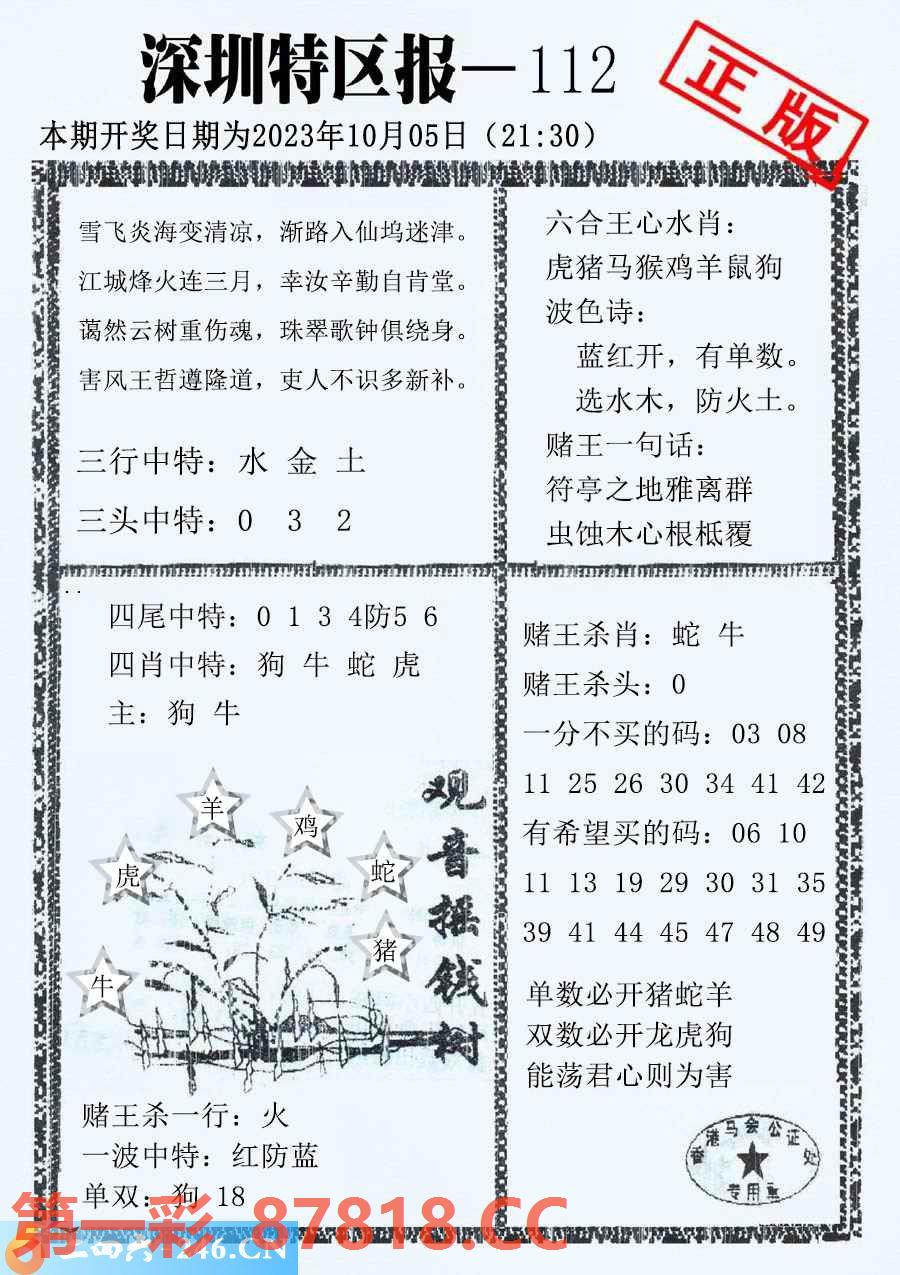 深圳特区报—112
正版
本期开奖日期为2023年10月05日（21:30）
雪飞炎海变清凉，渐路入仙坞迷津。
江城烽火连三月，幸汝辛勤自肯堂。
蔼然云树重伤魂，珠翠歌钟俱绕身。
害风王哲遵隆道，吏人不识多新补。
三行中特：水 金 土
三头中特：0 3 2
六合王心水肖：
虎猪马猴鸡羊鼠狗
波色诗：
蓝红开，有单数。
选水木，防火土。
赌王一句话：
符亭之地雅离群
虫蚀木心根柢覆
四尾中特：0 1 3 4防5 6
四肖中特：狗 牛 蛇 虎
主：狗 牛
羊
鸡
虎
蛇
猪
牛
观音摇钱树
赌王杀一行：火
一波中特：红防蓝
单双：狗 18
赌王杀肖：蛇 牛
赌王杀头：0
一分不买的码：03 08
11 25 26 30 34 41 42
有希望买的码：06 10
11 13 19 29 30 31 35
39 41 44 45 47 48 49
单数必开猪蛇羊
双数必开龙虎狗
能荡君心则为害
香港马会公证处
专用章
第一彩 87818.CC
246.CN